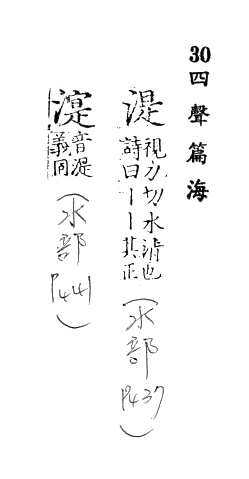 30四聲篇海
湜視力切水清也
詩曰丨丨其正
(水部
P437)
澸音湜
義同
(水部
P441)